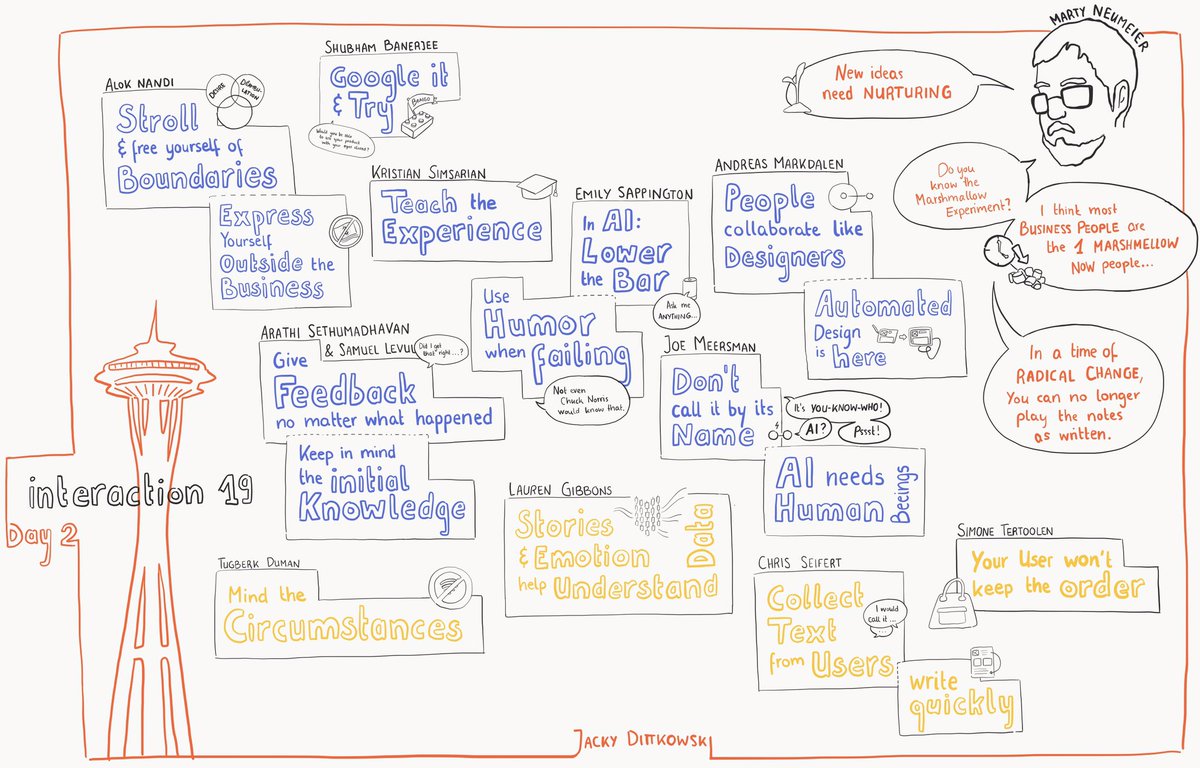 MARTY NEUMEIER
New ideas
need NURTURING
Do you
know the
Marshmallow
Experiment?
I think most
BUSINESS PEOPLE are
the 1 MARSHMELLOW
NOW people...
In a time of
RADICAL CHANGE,
You can no longer
play the notes
as written.
ALOK NANDI
DESIRE
Stroll
& free yourself of
Boundaries
Express
Yourself
Outside the
Business
SHUBHAM BANERJEE
Google it
& Try
BRAIGO
Would you be able
to use your product
with your eyes closed?
KRISTIAN SIMSARIAN
Teach the
Experience
EMILY SAPPINGTON
In AI:
Lower
the Bar
Ask me
ANYTHING...
Use
Humor
when failing
Not even
Chuck Norris
would know that.
ANDREAS MARKDALEN
People
collaborate like
Designers
Automated
Design
is here
ARATHI SETHUMADHAVAN
& SAMUEL LEVUL
Did I get
that right...?
Give
Feedback
no matter what happened
Keep in mind
the initial
Knowledge
JOE MEERSMAN
Don't
call it by its
Name
It's YOU-KNOW-WHO!
AI?
Pssst!
AI needs
Human
Beeings
interaction 19
Day 2
LAUREN GIBBONS
Stories
& Emotion
help Understand
Data
TUGBERK DUMAN
Mind the
Circumstances
CHRIS SEIFERT
Collect
Text
from Users
I would
call it...
write
quickly
SIMONE TERTOOLEN
Your User won't
keep the order
JACKY DITTKOWSKI